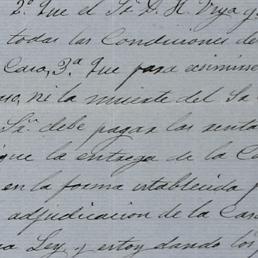 2.º Que el Sr. D. H.
todas las Condiciones de
Caso, 3.ª Que para
ni la muerte del Sr
Sr. debe pagar las
que la entrega de la Ca
en la forma establecida
adjudicacion de la Ca
Ley, y estoy dando los